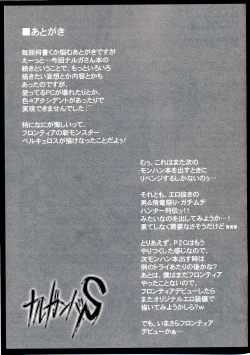 ■あとがき
毎回何書くか悩むあとがきですが
えーっと…今回ナルガさん本の
続きということで、もっといろいろ
描きたい妄想とか内容とかも
あったのですが、
使ってるPCが壊れたりとか、
色々アクシデントがあったりで
実現できませんでした;
特になにが悔しいって、
フロンティアの新モンスター
ベルキュロスが描けなかったことだよぅ!
むぅ、これはまた次の
モンハン本を出すときに
リベンジするしかないのぅ…
それとも、エロ抜きの
男&飛竜祭り・ガチムチ
ハンター列伝ッ!!
みたいなのを出してみようか…!
果てしなく需要なさそうだけどwww
とりあえず、P2Gはもう
やりつくした感じなので、
次モンハン本出す時は
例のトライあたりの後かな?
あとは、僕はまだフロンティア
やったことないので、
フロンティアデビューしたら
またオリジナルエロ装備で
描いてみようかしら?w
でも、いまさらフロンティア
デビューかぁ…
ナルガンバS